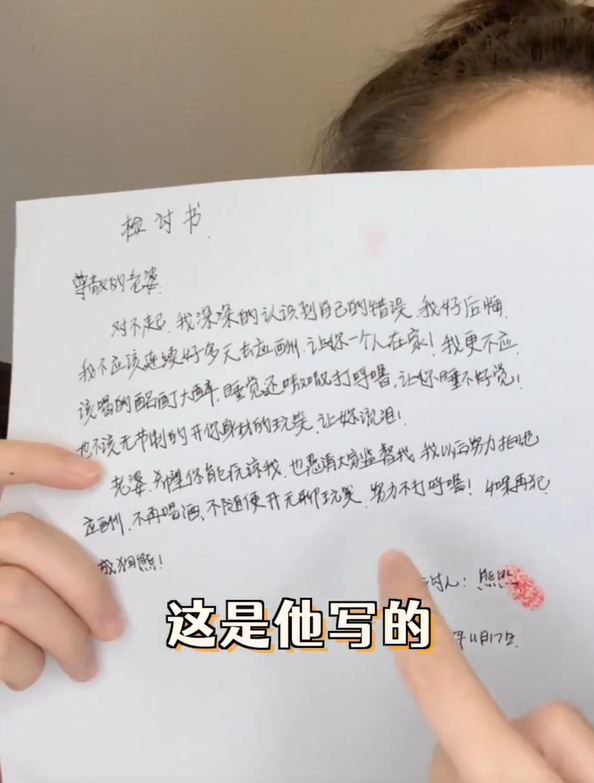 检讨书
尊敬的老婆
对不起,我深深的认识到自己的错误,我好后悔,
我不应该连续好多天去应酬,让你一个人在家!我更不应
该喝的酩酊大醉,睡觉还嗷嗷打呼噜,让你睡不好觉!
也不该无节制的开你身材的玩笑,让你流泪!
老婆,希望你能原谅我,也恳请大家监督我,我以后努力拒绝
应酬,不再喝酒,不随便开无聊玩笑,努力不打呼噜!如果再犯
狗熊!
讨人:熊
年11月17日
这是他写的